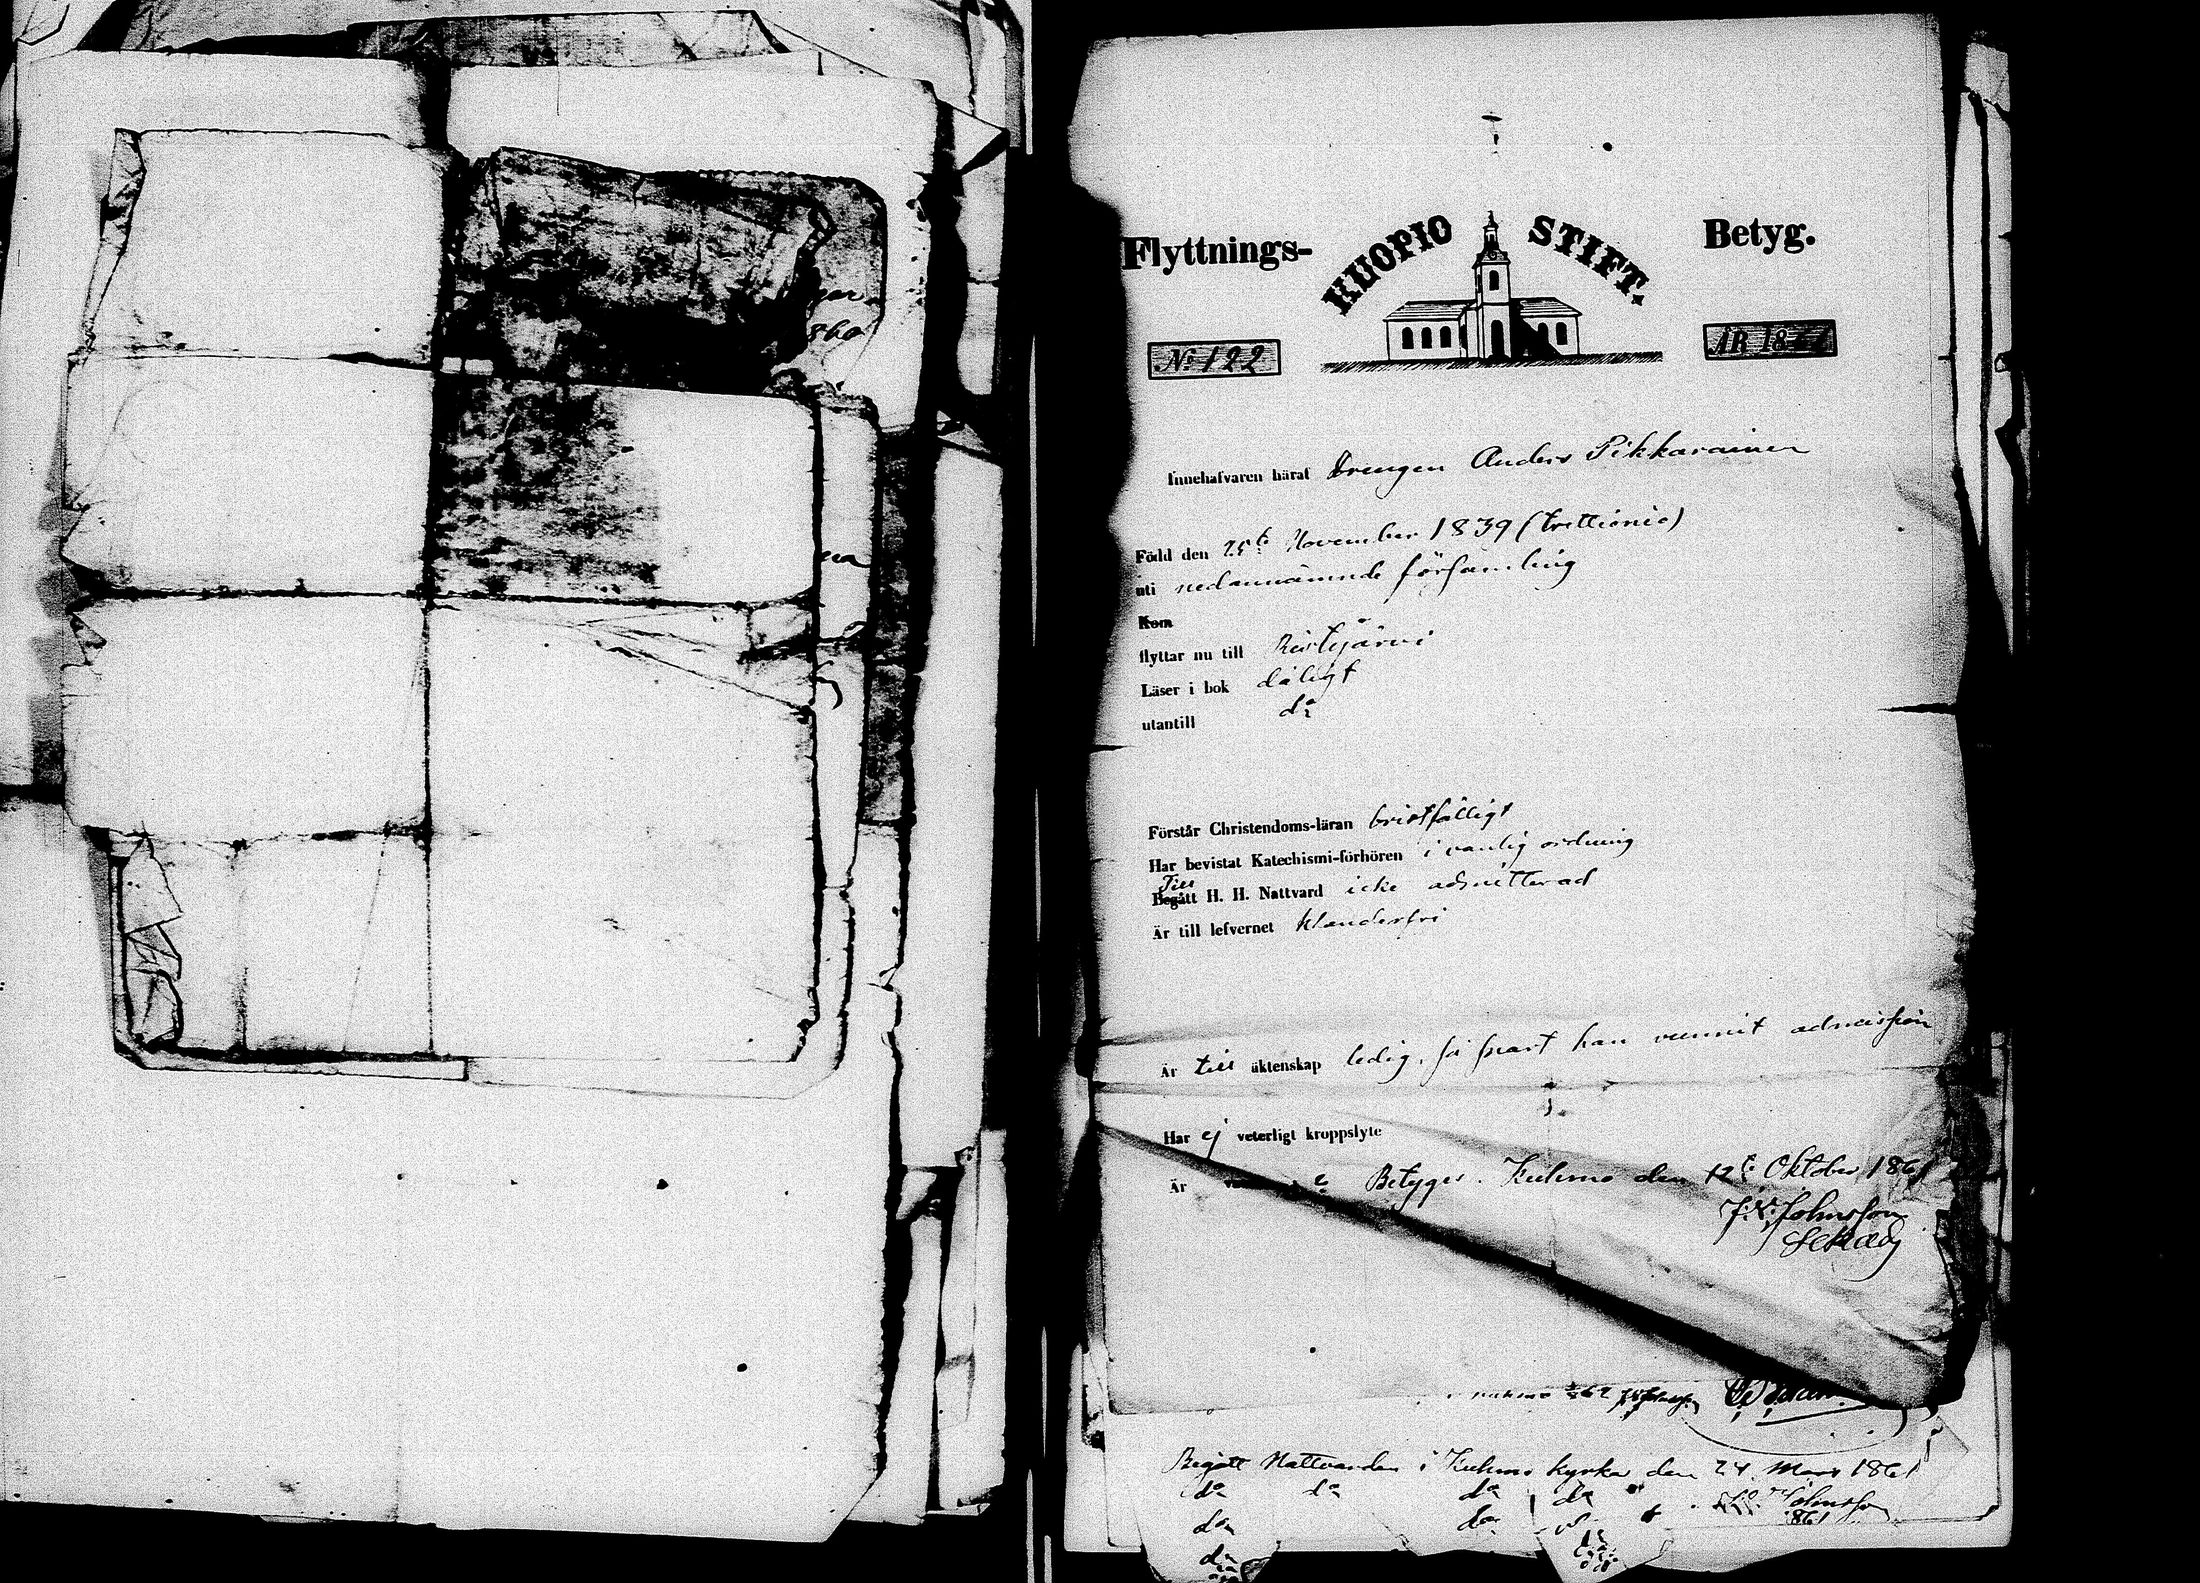 Flyttnings- KUOPIO STIFT. Betyg.
No 122 ÅR 1861
Innehafvaren häraf Drengen Anders Pikkarainen
Född den 25te November 1839 (trettionio)
uti nedannämnde församling
Kom
flyttar nu till Ristijärvi
Läser i bok dåligt
utantill do
Förstår Christendoms-läran bristfälligt
Har bevistat Katechismi-förhören i vanlig ordning
Till
Begått H. H. Nattvard icke admitterad
Är till lefvernet klanderfri
Är till äktenskap ledig, så snart han vunnit admission
Har ej veterligt kroppslyte
Är Betygar. Kuhmo den 12te Oktober 1861
J. F. Johnsson
Begått Nattvarden i Kuhmo kyrka den 24 Mars 1861
do do do do Johnsson
do do 1861
do